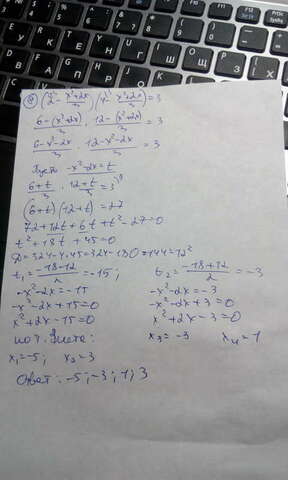 (2 - x²+2x/3)(4 - x²+2x/3) = 3
6-(x²+2x)/3 · 12-(x²+2x)/3 = 3
6-x²-2x/3 · 12-x²-2x/3 = 3
Пусть -x²-2x=t
6+t/3 · 12+t/3 = 3
(6+t)(12+t)=27
72+12t+6t+t²-27=0
t²+18t+45=0
D=324-4·45=324-180=144=12²
t₁=-18-12/2=-15; t₂=-18+12/2=-3
-x²-2x=-15 -x²-2x=-3
-x²-2x+15=0 -x²-2x+3=0
x²+2x-15=0 x²+2x-3=0
по т. Виета: x₃=-3 x₄=1
x₁=-5; x₂=3
Ответ: -5; -3; 1; 3